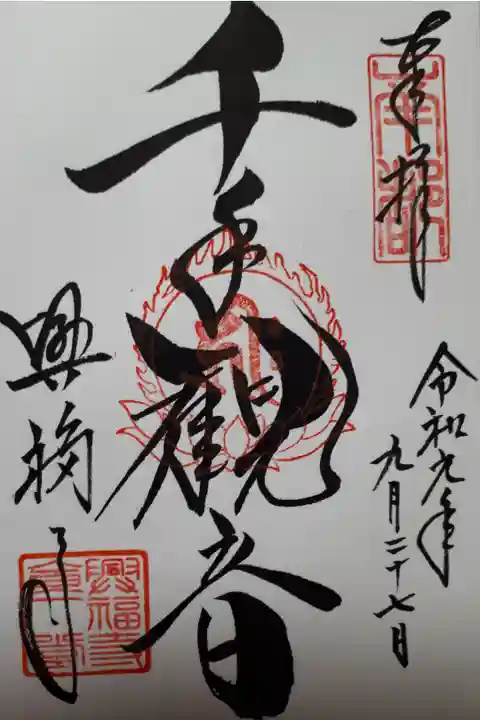 奉拝
南都
令和元年
九月二十七日
千手観音
興福寺
興福寺